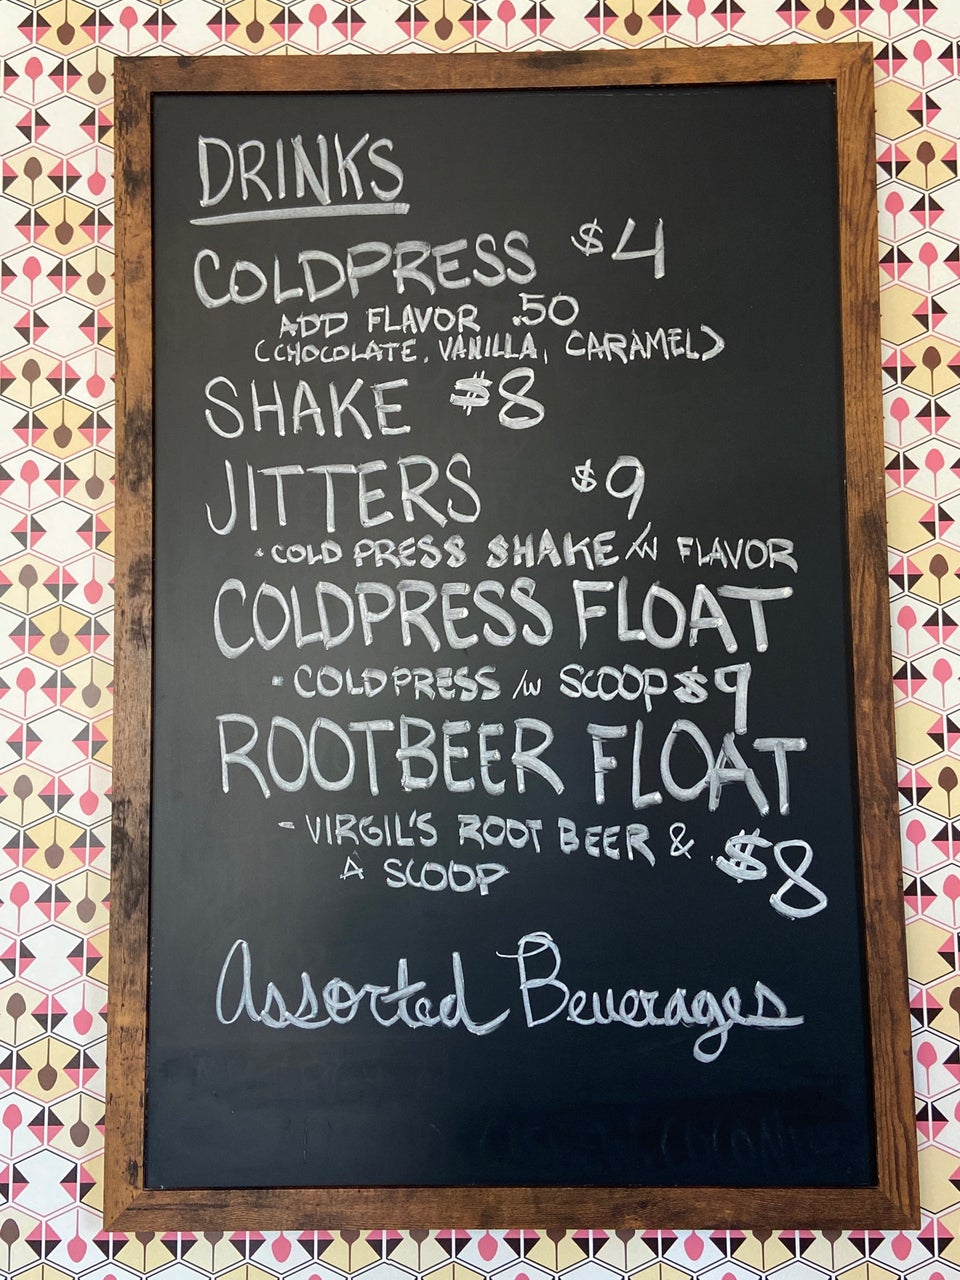 DRINKS
COLDPRESS $4
ADD FLAVOR .50
(CHOCOLATE, VANILLA, CARAMEL)
SHAKE $8
JITTERS $9
• COLD PRESS SHAKE /W FLAVOR
COLDPRESS FLOAT
• COLDPRESS /W SCOOP $9
ROOTBEER FLOAT
- VIRGIL'S ROOT BEER &
A SCOOP $8
Assorted Beverages